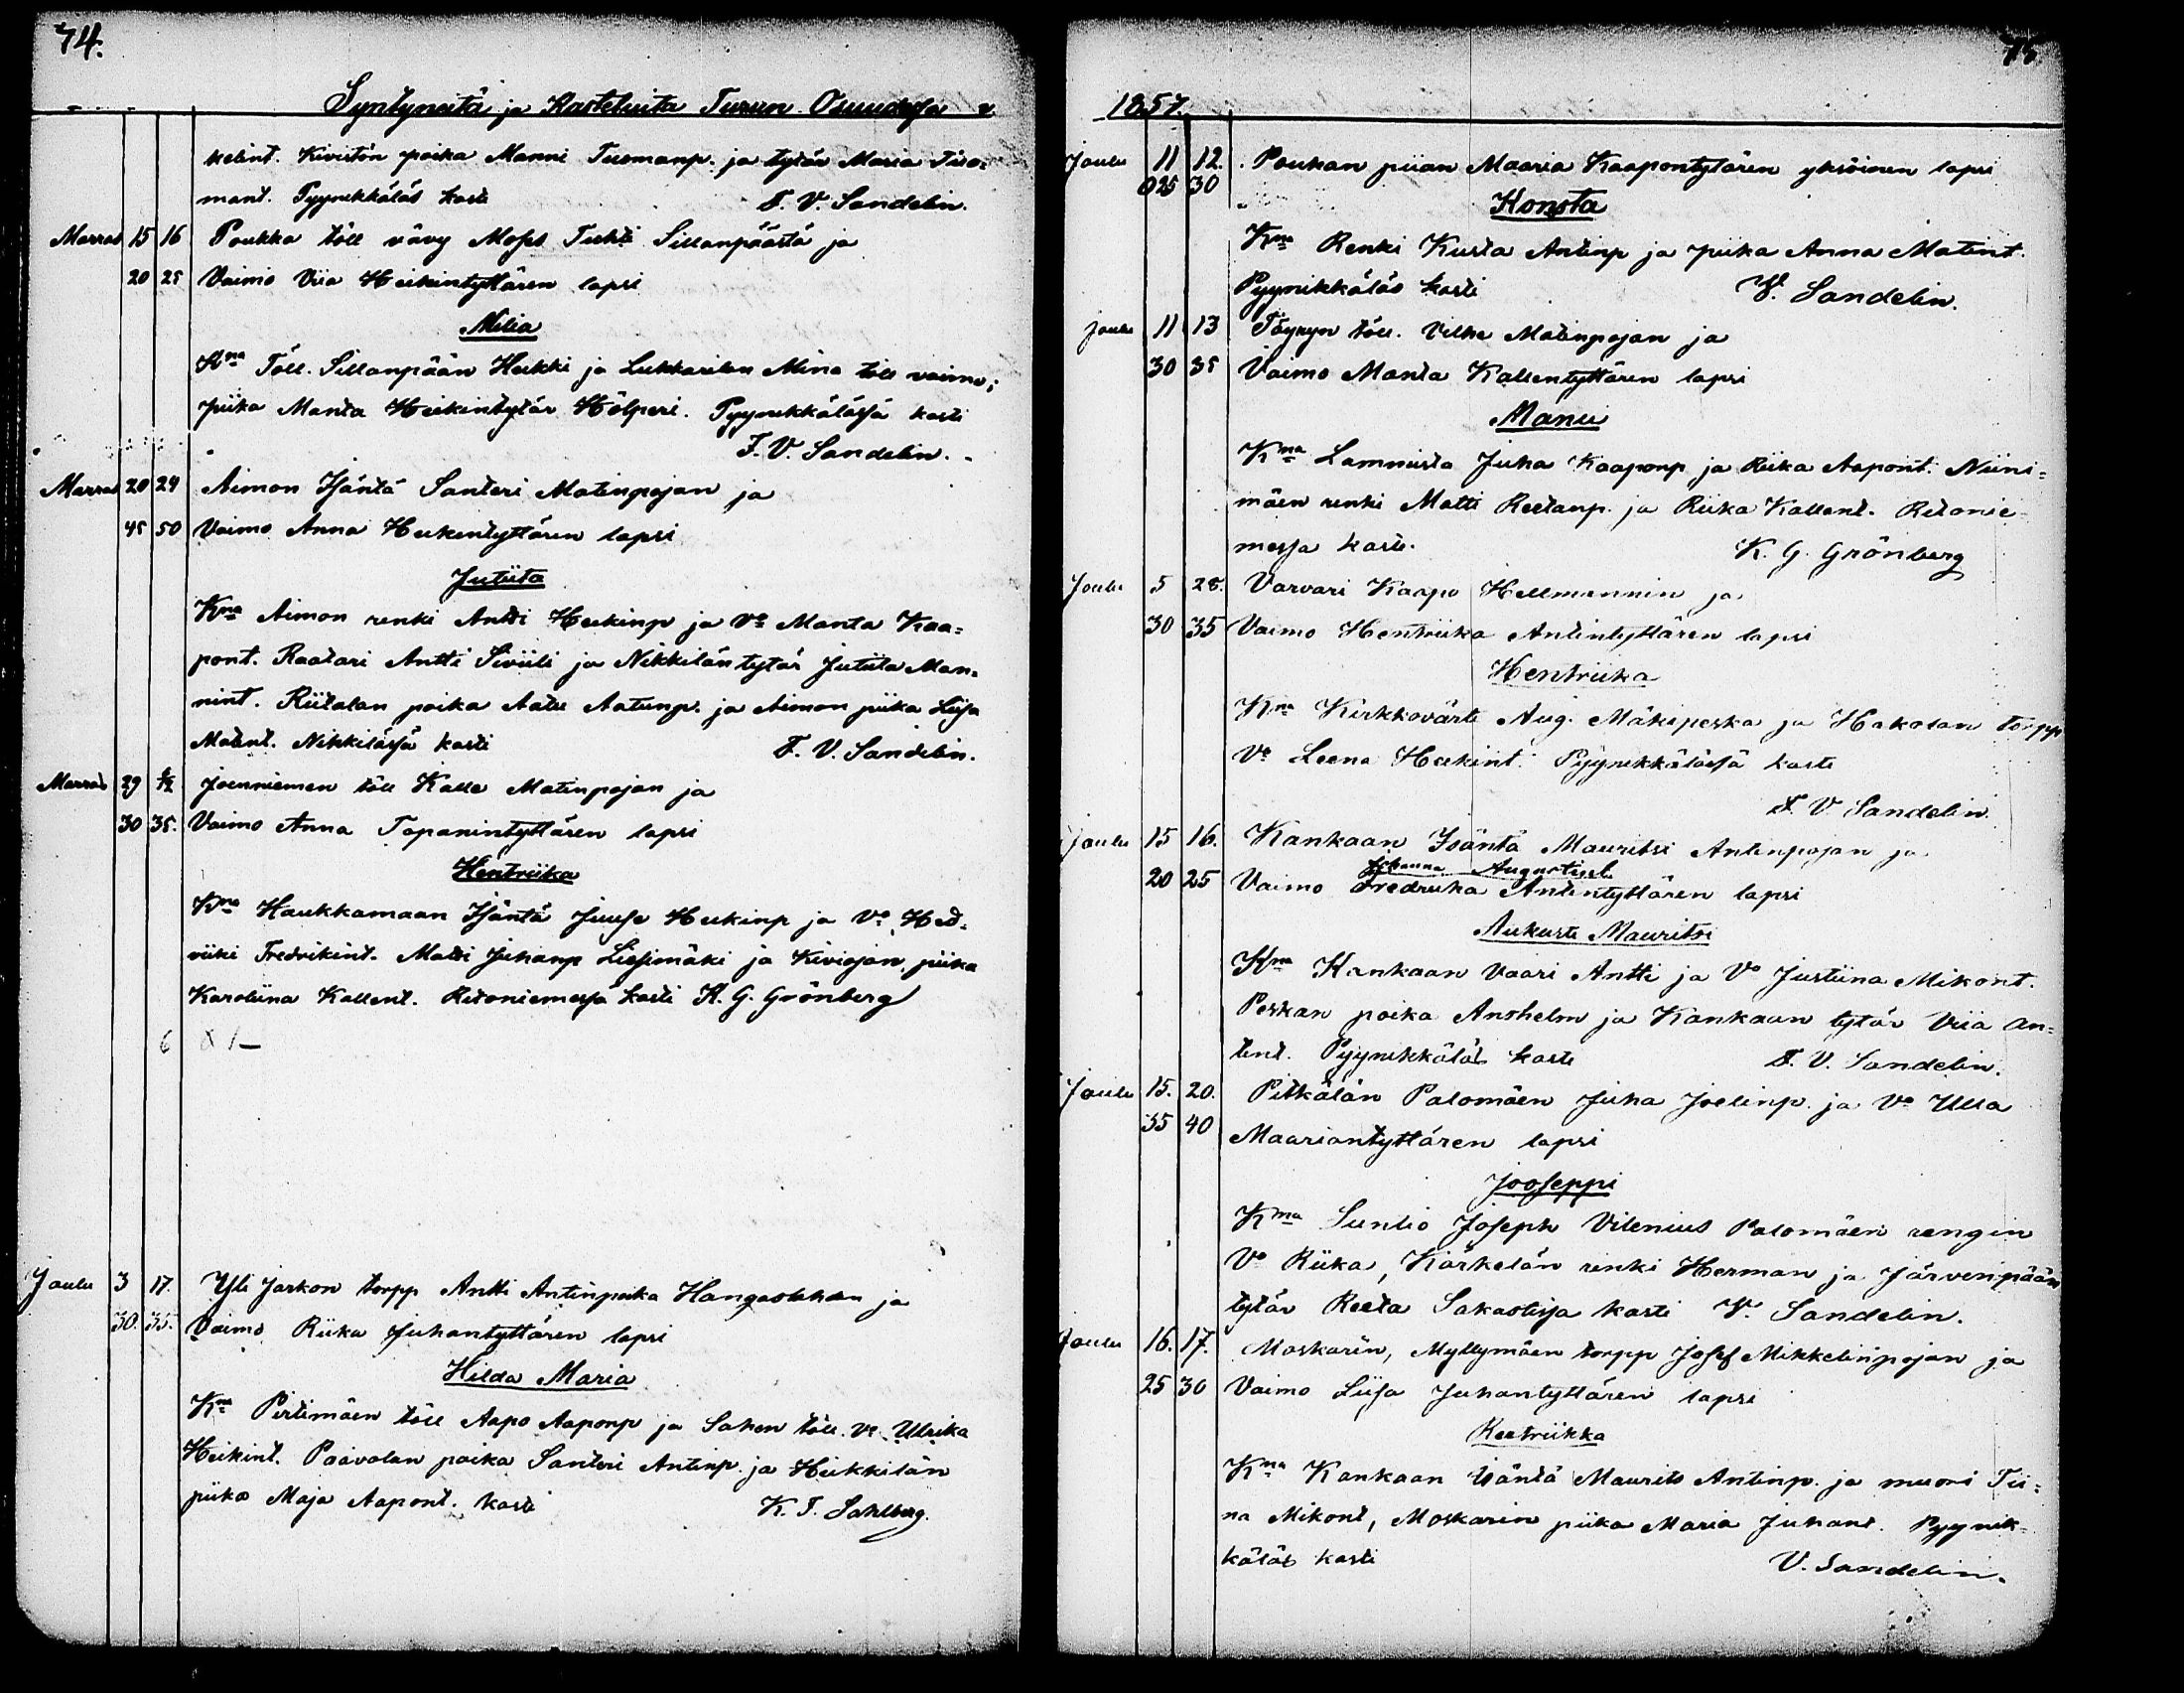 74.
Syntyneitä ja Kastetuita Turun Osuudessa v.
kelint. Kivistön poika Manni Tuomanp. ja tytär Maria Tuo-
mant. Pyynikkäläs kasti F. V. Sandelin.
Marras 15 16 Poukka töll vävy Moses Tuhti Sillanpäästä ja
20 25 Vaimo Viia Heikintyttären lapsi
Milia
Kma Töll. Sillanpään Heikki ja Lukkarilan Mina töll vaimo;
piika Manta Heikintytär Hölperi. Pyynikkälässä kasti
F. V. Sandelin.
Marras 20 24 Aimon Isäntä Santeri Matinpojan ja
45 50 Vaimo Anna Heikintyttären lapsi
Jutiita
Kma Aimon renki Antti Heikinp ja Vo Manta Kaa-
pont. Raatari Antti Siviili ja Nikkilän tytär Jutiita Man-
nint. Riitalan poika Aatu Aatunp. ja Aimon piika Liisa
Matint. Nikkilässä kasti F. V. Sandelin.
Marras 29 Joenniemen töll Kalle Matinpojan ja
30 35. Vaimo Anna Tapanintyttären lapsi
Hentriika
Kma Haukkamaan Isäntä Juuse Heikinp ja Vo Hed-
viiki Fredrikint. Matti Juhanp Liesimäki ja Kiviojan piika
Karoliina Kallent. Ritoniemessä kasti K. G. Grönberg
6
Joulu 3 17. Yli Jaskon torpp Antti Antinpoika Hangaslahden ja
30. 35. Vaimo Riika Juhantyttären lapsi
Hilda Maria
Kma Pirtimäen töll Aapo Aaponp ja Sahen töll. Vo Ulrika
Heikint. Paavolan poika Santeri Antinp. ja Heikkilän
piika Maja Aapont. kasti K. T. Sahlberg.
75
1857.
Joulu 11 12. Pouhan piian Maaria Kaapontytären yksöinen lapsi
025 30
Konsta
Kma Renki Kusta Antinp ja piika Anna Matint.
Pyynikkäläs kasti V. Sandelin.
Joulu 11 13 Töyryn töll. Vilhe Matinpojan ja
30 35 Vaimo Manta Kallentyttären lapsi
Manu
Kma Lamnista Juha Kaaponp ja Riika Aapont. Niini-
mäen renki Matti Reetanp. ja Riika Kallent. Ritonie-
messa kasti. K. G. Grönberg
Joulu 5 28. Varvari Kaapo Hellmannin ja
30 35 Vaimo Hentriika Antintyttären lapsi
Hentriika
Kma Kirkkovärti Aug. Mäkipeska ja Hakolan torpp
Vo Leena Heikint. Pyynikkälässä kasti
F. V. Sandelin.
Joulu 15 16. Kankaan Isäntä Mauritsi Antinpojan ja
Johanna
20 25 Vaimo Fredriika Antintyttären lapsi
Aukusti Mauritsi
Kma Kankaan Vaari Antti ja Vo Justiina Mikont.
Peskan poika Anshelm ja Kankaan tytär Viia An-
tint. Pyynikkäläs kasti F. V. Sandelin.
Joulu 15. 20. Pitkälän Palomäen Juha Joelinp. ja Vo Ulla
35 40 Maariantyttären lapsi
Jooseppi
Kma Suntio Joseph Vilenius Palomäen rengin
Vo Riika, Kärkelän renki Herman ja Järvenpään
tytär Reeta Sakastissa kasti V. Sandelin.
Joulu 16. 17. Moskarin, Myllymäen torpp Josef Mikkelinpojan ja
25 30 Vaimo Liisa Juhantyttären lapsi
Reetriikka
Kma Kankaan Isäntä Maurits Antinp. ja muori Tii-
na Mikont, Moskarin piika Maria Juhant. Pyynik-
käläs kasti V. Sandelin.